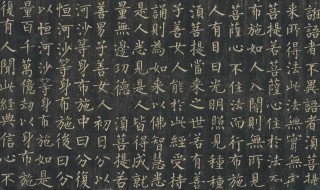 誑語者不異語者須菩提
來所得法此法無實無虛
菩提若菩薩心住於法而
布施如人入闇則無所見
菩薩心不住法而行布施
人有目日光明照見種種
須菩提當來之世若有善
子善女人能於此經受持
誦則為如來以佛智慧悉
是人悉見是人皆得成就
量無邊功德 須菩提若
善男子善女人初日分以
河沙等身布施中日分復
恒河沙等身布施後日分
以恒河沙等身布施如是
量百千萬億劫以身布施
復有人聞此經典信心不